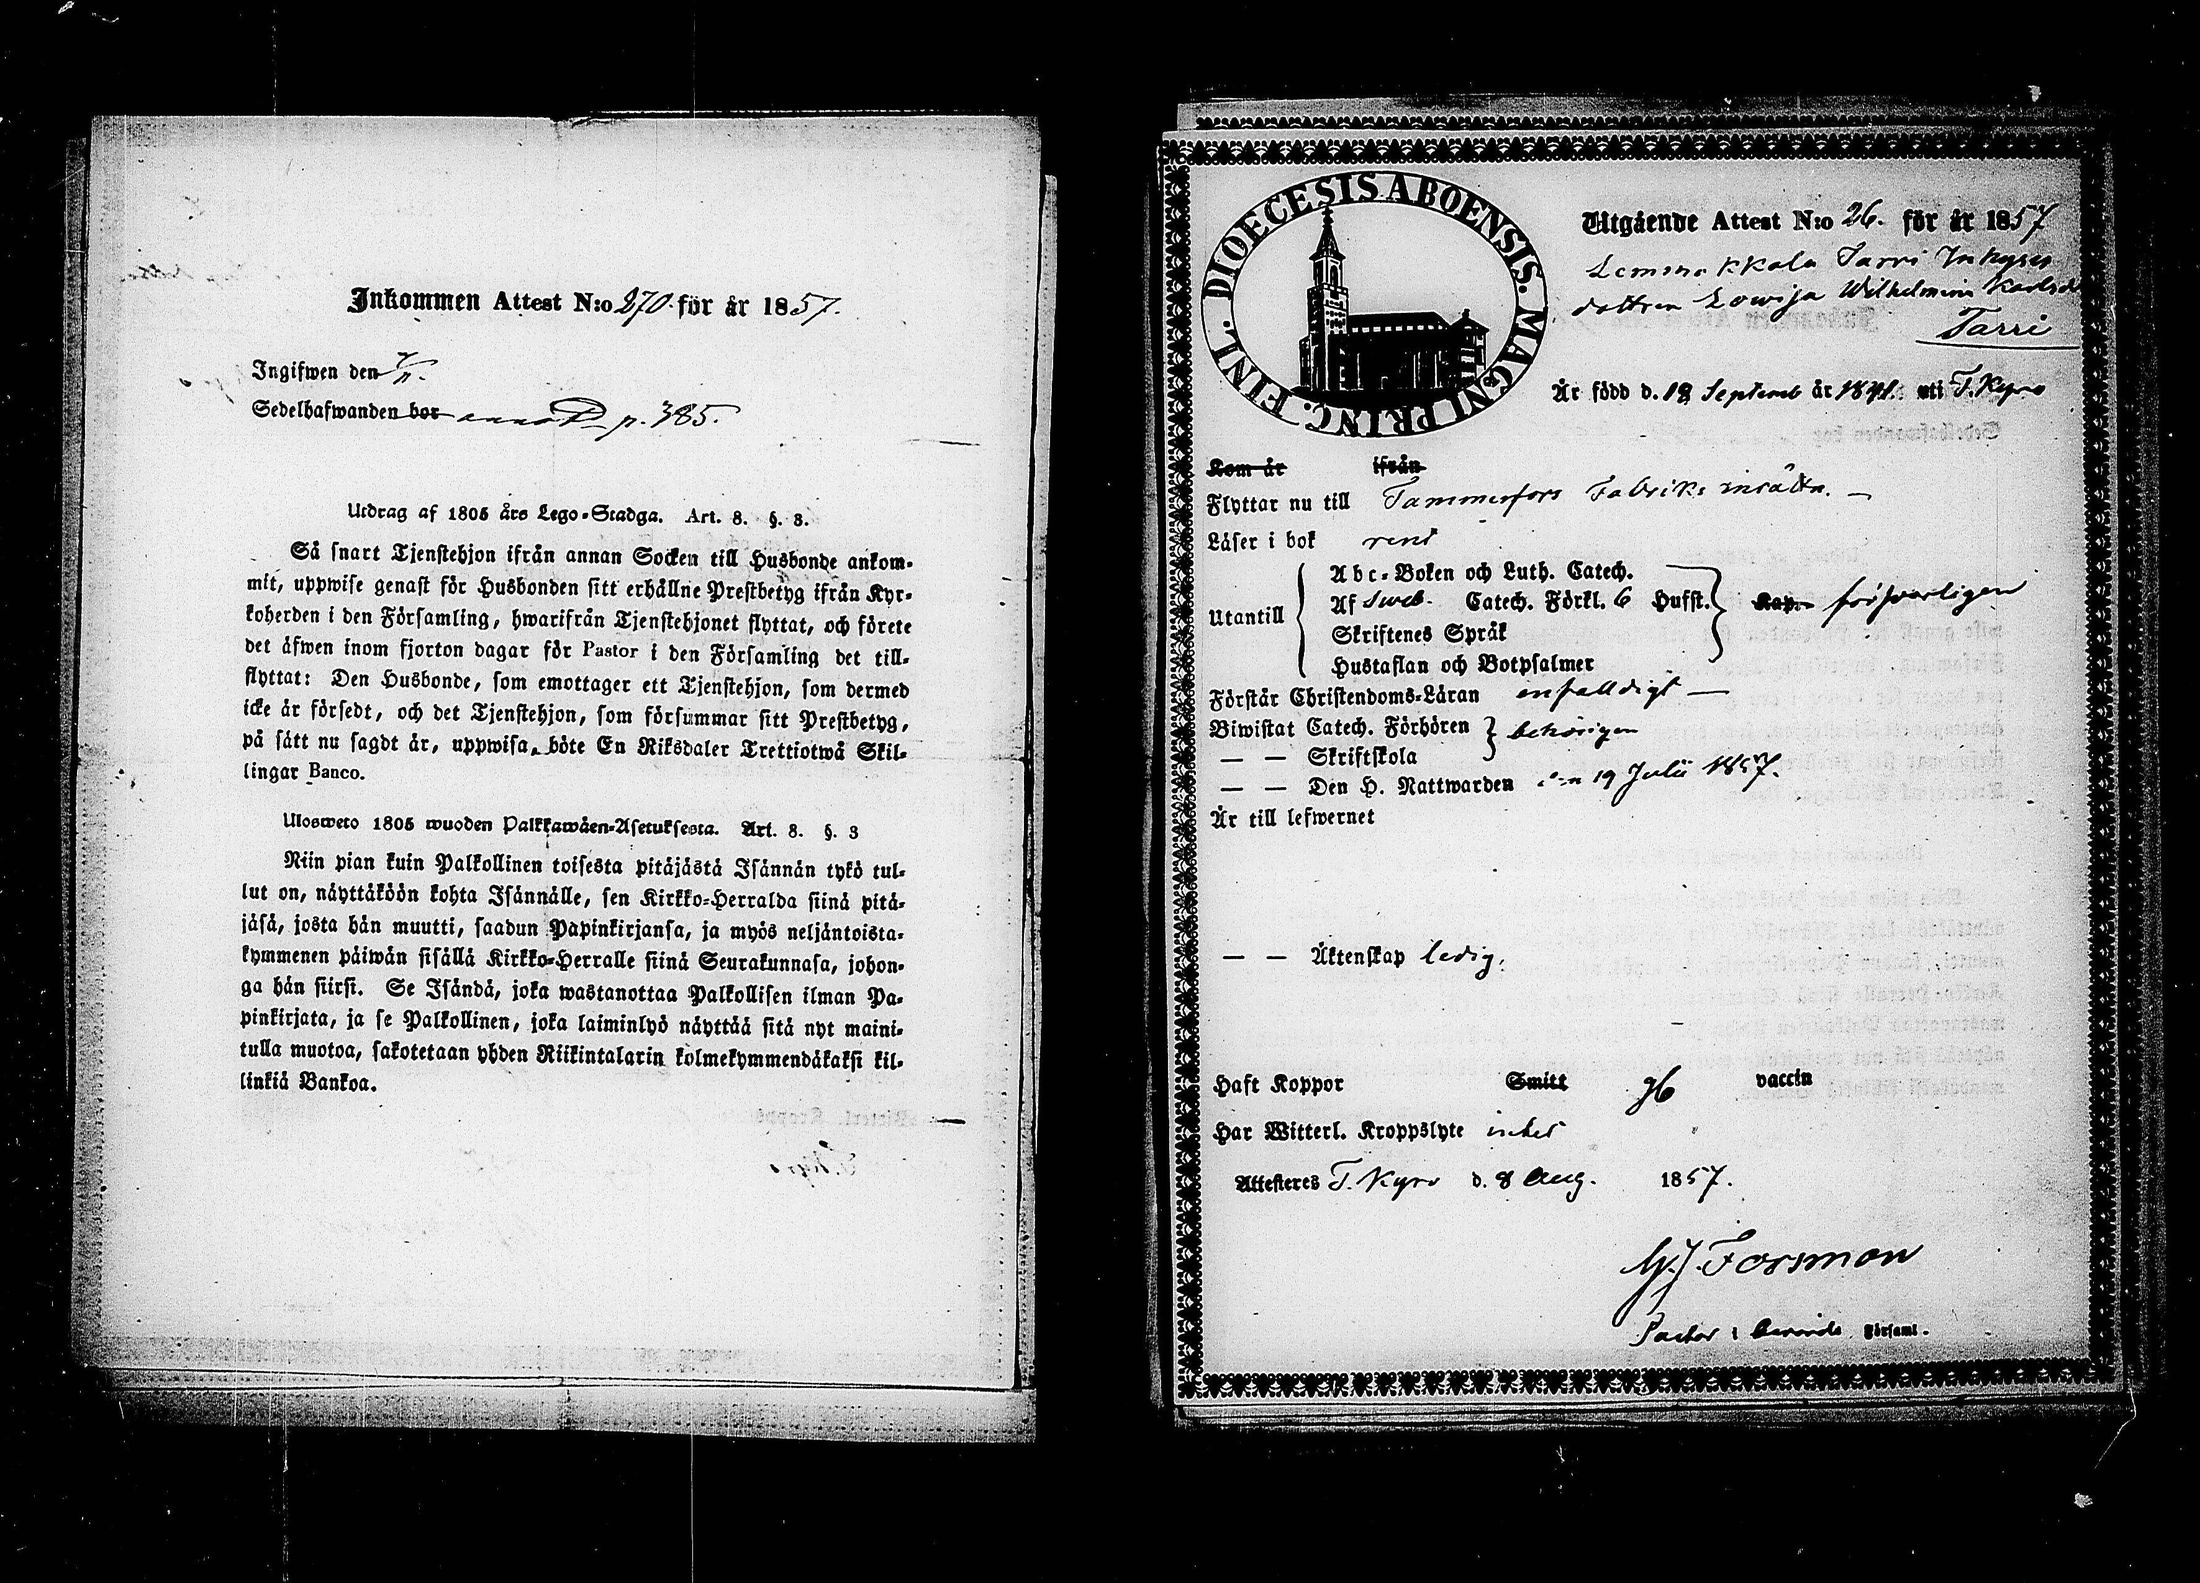 Inkommen Attest N:o 270 för år 1857.
Ingifwen den 7/11.
Sedelhafwanden bor p. 385.
Utdrag af 1805 års Lego-Stadga. Art. 8. §. 3.
Så snart Tjenstehjon ifrån annan Socken till Husbonde ankom-
mit, uppwise genast för Husbonden sitt erhållne Prestbetyg ifrån Kyr-
koherden i den Församling, hwarifrån Tjenstehjonet flyttat, och förete
det äfwen inom fjorton dagar för Pastor i den Församling det till-
flyttat: Den Husbonde, som emottager ett Tjenstehjon, som dermed
icke är försedt, och det Tjenstehjon, som försummar sitt Prestbetyg,
på sätt nu sagdt är, uppwisa, böte En Riksdaler Trettiotwå Skil-
lingar Banco.
Ulosweto 1805 wuoden Palkkawäen-Asetuksesta. Art. 8. §. 3
Niin pian kuin Palkollinen toisesta pitäjästä Isännän tykö tul-
lut on, näyttäköön kohta Isännälle, sen Kirkko-Herralda siinä pitä-
jäsä, josta hän muutti, saadun Papinkirjansa, ja myös neljäntoista-
kymmenen päiwän sisällä Kirkko-Herralle siinä Seurakunnasa, johon-
ga hän siirsi. Se Isändä, joka wastanottaa Palkollisen ilman Pa-
pinkirjata, ja se Palkollinen, joka laiminlyö näyttää sitä nyt maini-
tulla muotoa, sakotetaan yhden Riikintalarin kolmekymmendäkaksi kil-
linkiä Bankoa.
DIOECESIS ABOENSIS. MAGNI PRINC. FINL.
Utgående Attest N:o 26. för år 1857
Lemmakkala Tarri Inhyses
dottren Lowisa Wilhelmina Karlsd
Tarri
Är född d. 18 Septemb år 1841. uti T. Kyro
Kom år ifrån
Flyttar nu till Tammerfors Fabriks inrättn.
Läser i bok rent
Utantill
Abc-Boken och Luth. Catech.
Af Sweb. Catech. Förkl. 6 Hufst. Kap. försvarligen
Skriftenes Språk
Hustaflan och Botpsalmer
Förstår Christendoms-Läran enfalldigt —
Biwistat Catech. Förhören behörigen
— — Skriftskola
— — Den H. Nattwarden den 19 Julii 1857.
Är till lefwernet
— — Äktenskap ledig.
Haft Koppor Smitt vaccin
Har Witterl. Kroppslyte intet
Attesteres T. Kyro d. 8 Aug. 1857.
Forsman
Pastor i berörde Församl.